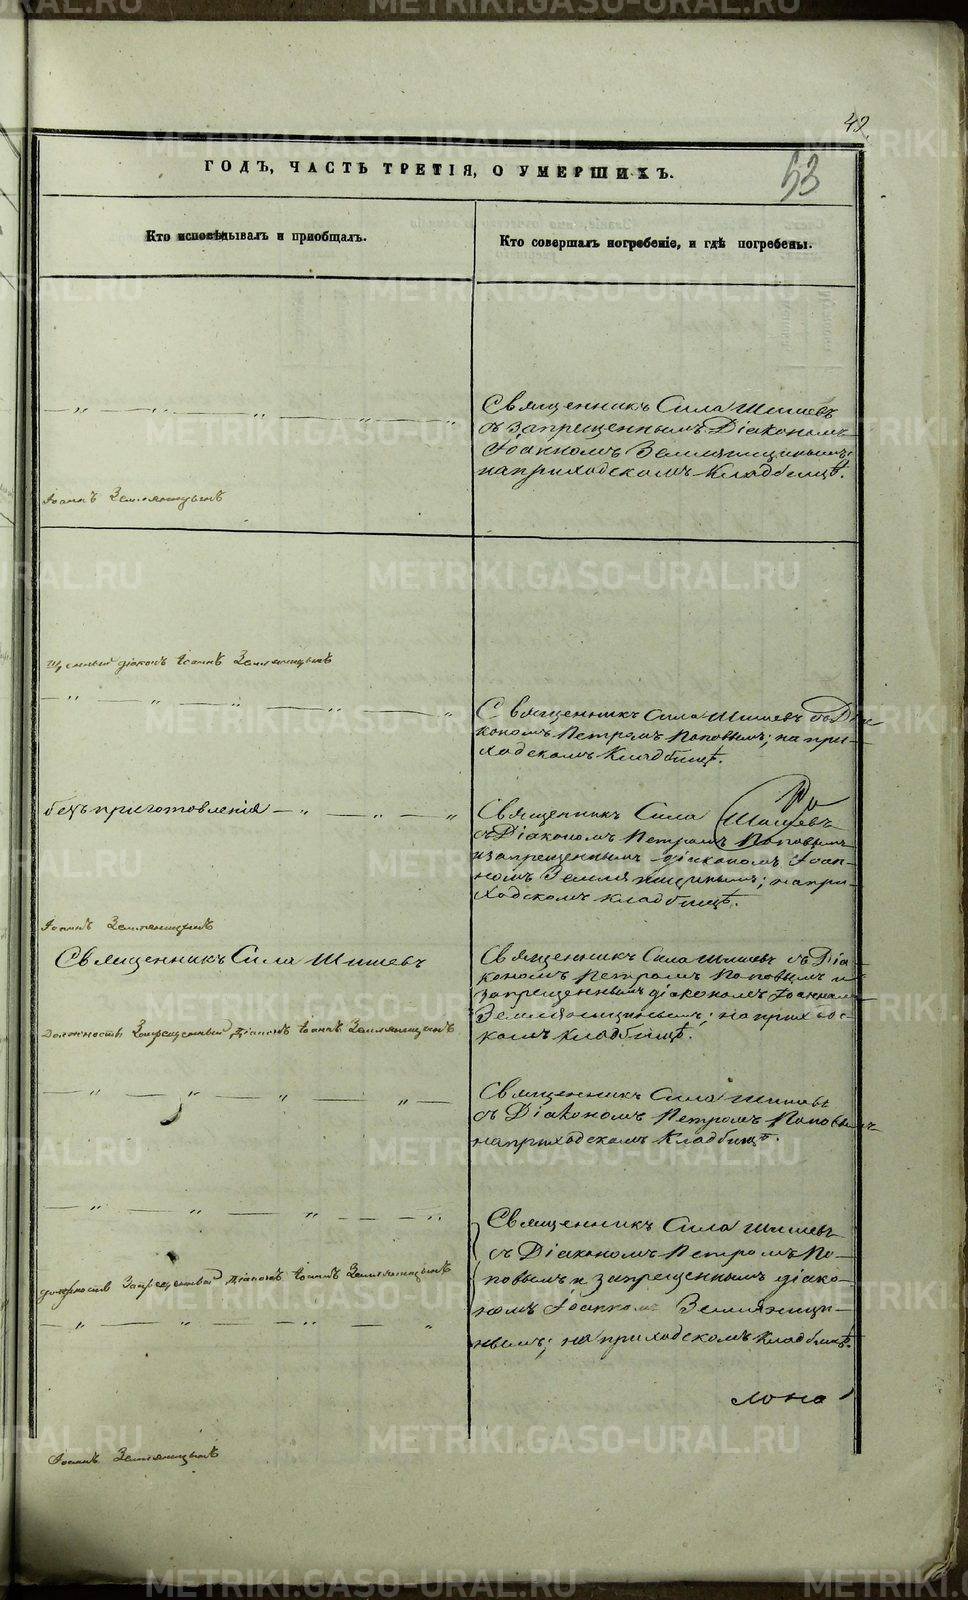 49.
53
ГОДЪ, ЧАСТЬ ТРЕТІЯ, О УМЕРШИХЪ.
Кто исповѣдывалъ и пріобщалъ.
Кто совершалъ погребеніе, и гдѣ погребены.
Священникъ Сила Шишевъ
съ запрещеннымъ Діакономъ
Іоанномъ Земляницинымъ;
на приходскомъ кладбищѣ.
Іоаннъ Земляницынъ
діаконъ Іоаннъ Земляницынъ
Священникъ Сила Шишевъ съ Діа-
кономъ Петромъ Поповымъ; на при-
ходскомъ кладбищѣ.
безъ приготовленія
Священникъ Сила Шишевъ
съ Діакономъ Петромъ Поповымъ
и запрещеннымъ діакономъ Іоан-
номъ Земляницинымъ; на при-
ходскомъ кладбищѣ.
Іоаннъ Земляницынъ
Священникъ Сила Шишевъ
Священникъ Сила Шишевъ съ Діа-
кономъ Петромъ Поповымъ и
запрещеннымъ діакономъ Іоанномъ
Земляницинымъ; на приходс-
комъ кладбищѣ.
должность Запрещенный Діаконъ Іоаннъ Земляницынъ
Священникъ Сила Шишевъ
съ Діакономъ Петромъ Поповымъ
на приходскомъ кладбищѣ.
Священникъ Сила Шишевъ
съ Діакономъ Петромъ По-
повымъ и запрещеннымъ діако-
номъ Іоанномъ Земляници-
нымъ; на приходскомъ кладбищѣ.
должность Запрещенный Діаконъ Іоаннъ Земляницынъ
Іоаннъ Земляницынъ
METRIKI.GASO-URAL.RU